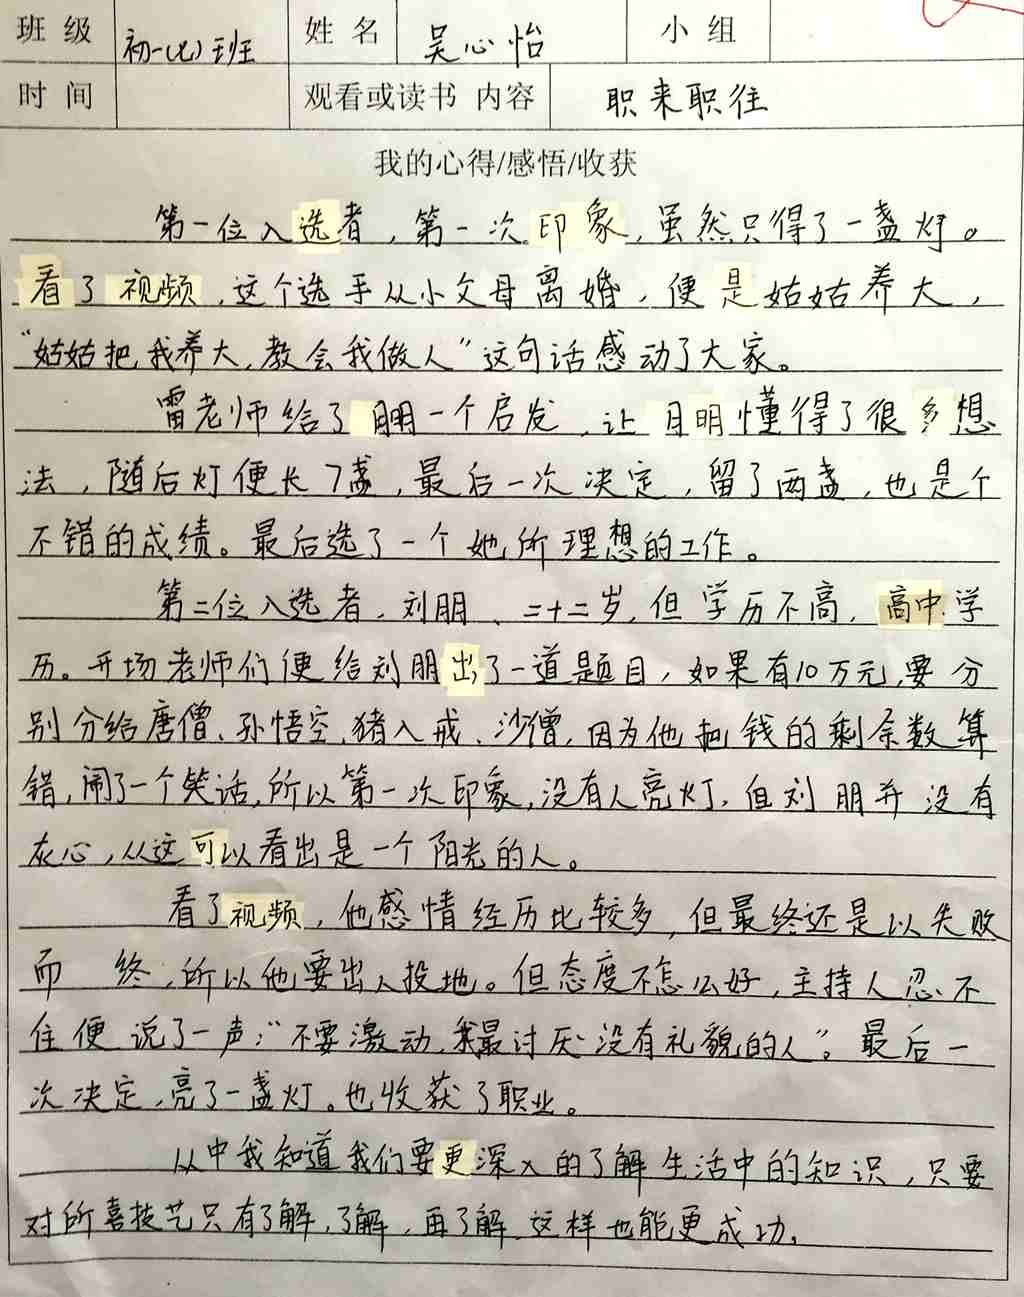 班级 初一(七)班 姓名 吴心怡 小组
时间 观看或读书 内容 职来职往
我的心得/感悟/收获
第一位入选者，第一次印象，虽然只得了一盏灯。
看了视频，这个选手从小父母离婚，便是姑姑养大，
“姑姑把我养大，教会我做人”这句话感动了大家。
雷老师给了朋一个启发，让明懂得了很多想
法，随后灯便长7盏，最后一次决定，留了两盏，也是个
不错的成绩。最后选了一个她所理想的工作。
第二位入选者，刘朋、二十二岁，但学历不高，高中学
历。开场老师们便给刘朋出了一道题目，如果有10万元，要分
别分给唐僧、孙悟空、猪八戒、沙僧，因为他把钱的剩余数算
错，闹了一个笑话，所以第一次印象，没有人亮灯，但刘朋并没有
灰心，从这可以看出是一个阳光的人。
看了视频，他感情经历比较多，但最终还是以失败
而终，所以他要出人投地。但态度不怎么好，主持人忍不
住便说了一声：“不要激动，我最讨厌没有礼貌的人”。最后一
次决定，亮了一盏灯。也收获了职业。
从中我知道我们要更深入的了解生活中的知识，只要
对所喜技艺只有了解，了解，再了解，这样也能更成功。